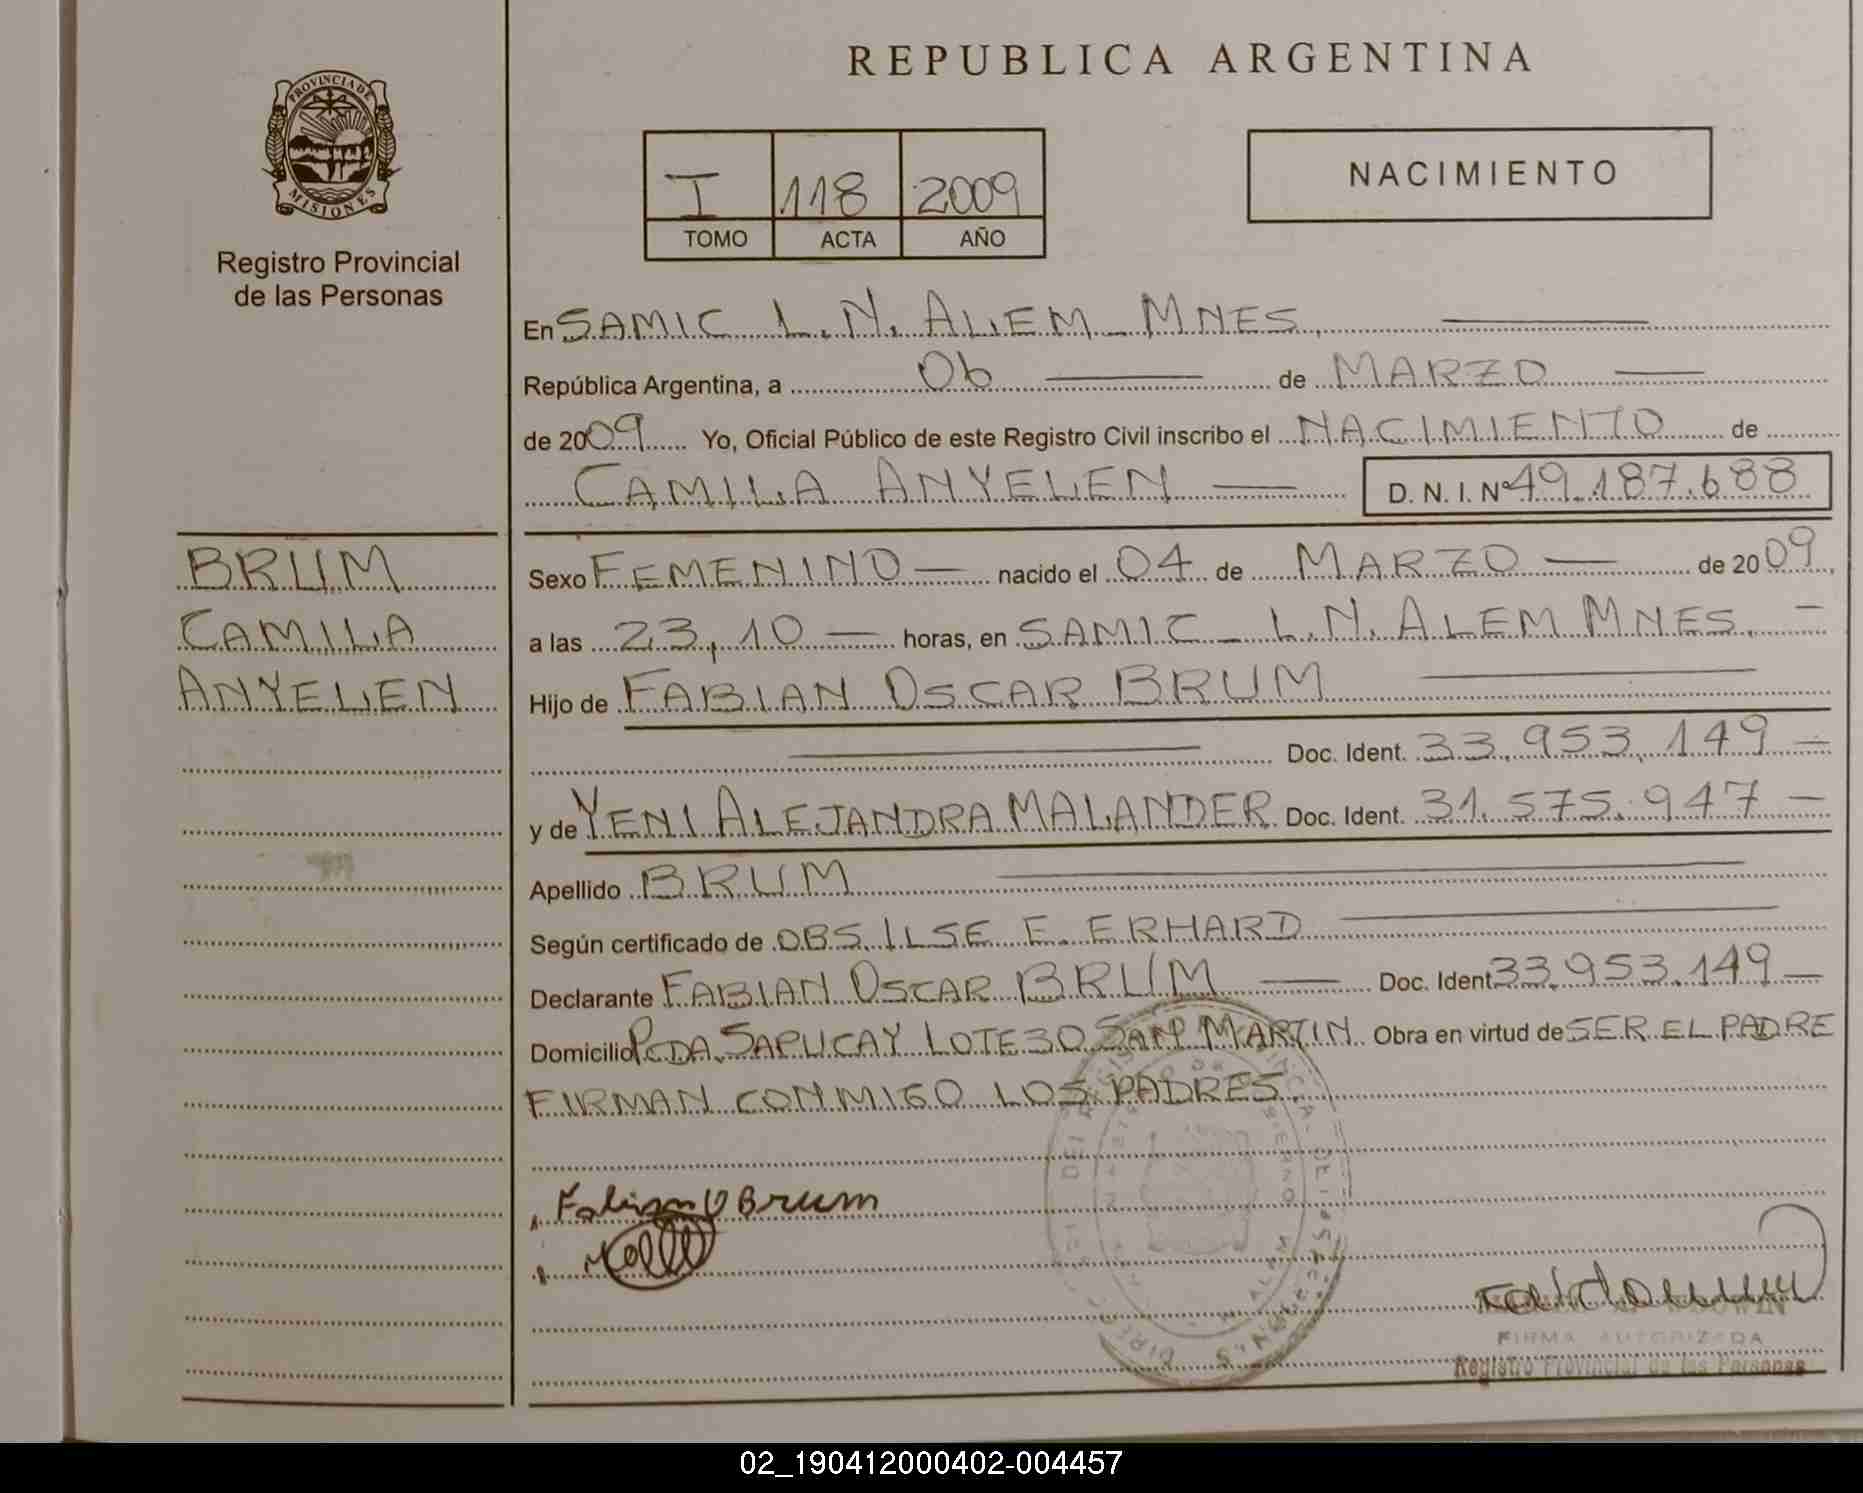 REPUBLICA ARGENTINA
PROVINCIA DE
MISIONES
Registro Provincial
de las Personas
I 118 2009
TOMO ACTA AÑO
NACIMIENTO
En SAMIC L.N. ALEM - MNES,
República Argentina, a 06 de MARZO
de 2009 Yo, Oficial Público de este Registro Civil inscribo el NACIMIENTO de
CAMILA ANYELEN D. N. I. Nº 49.187.688
BRUM
CAMILA
ANYELEN
Sexo FEMENINO nacido el 04 de MARZO de 2009,
a las 23,10 horas, en SAMIC - L.N. ALEM MNES.
Hijo de FABIAN OSCAR BRUM
Doc. Ident. 33.953.149
y de YENI ALEJANDRA MALANDER Doc. Ident. 31.575.947
Apellido BRUM
Según certificado de OBS. ILSE E. ERHARD
Declarante FABIAN OSCAR BRUM Doc. Ident 33.953.149
Domicilio PCDA. SAPUCAY LOTE 30 SAN MARTIN. Obra en virtud de SER EL PADRE
FIRMAN CONMIGO LOS PADRES.
Fabian O Brum
FIRMA AUTORIZADA
Registro Provincial de las Personas
02_190412000402-004457